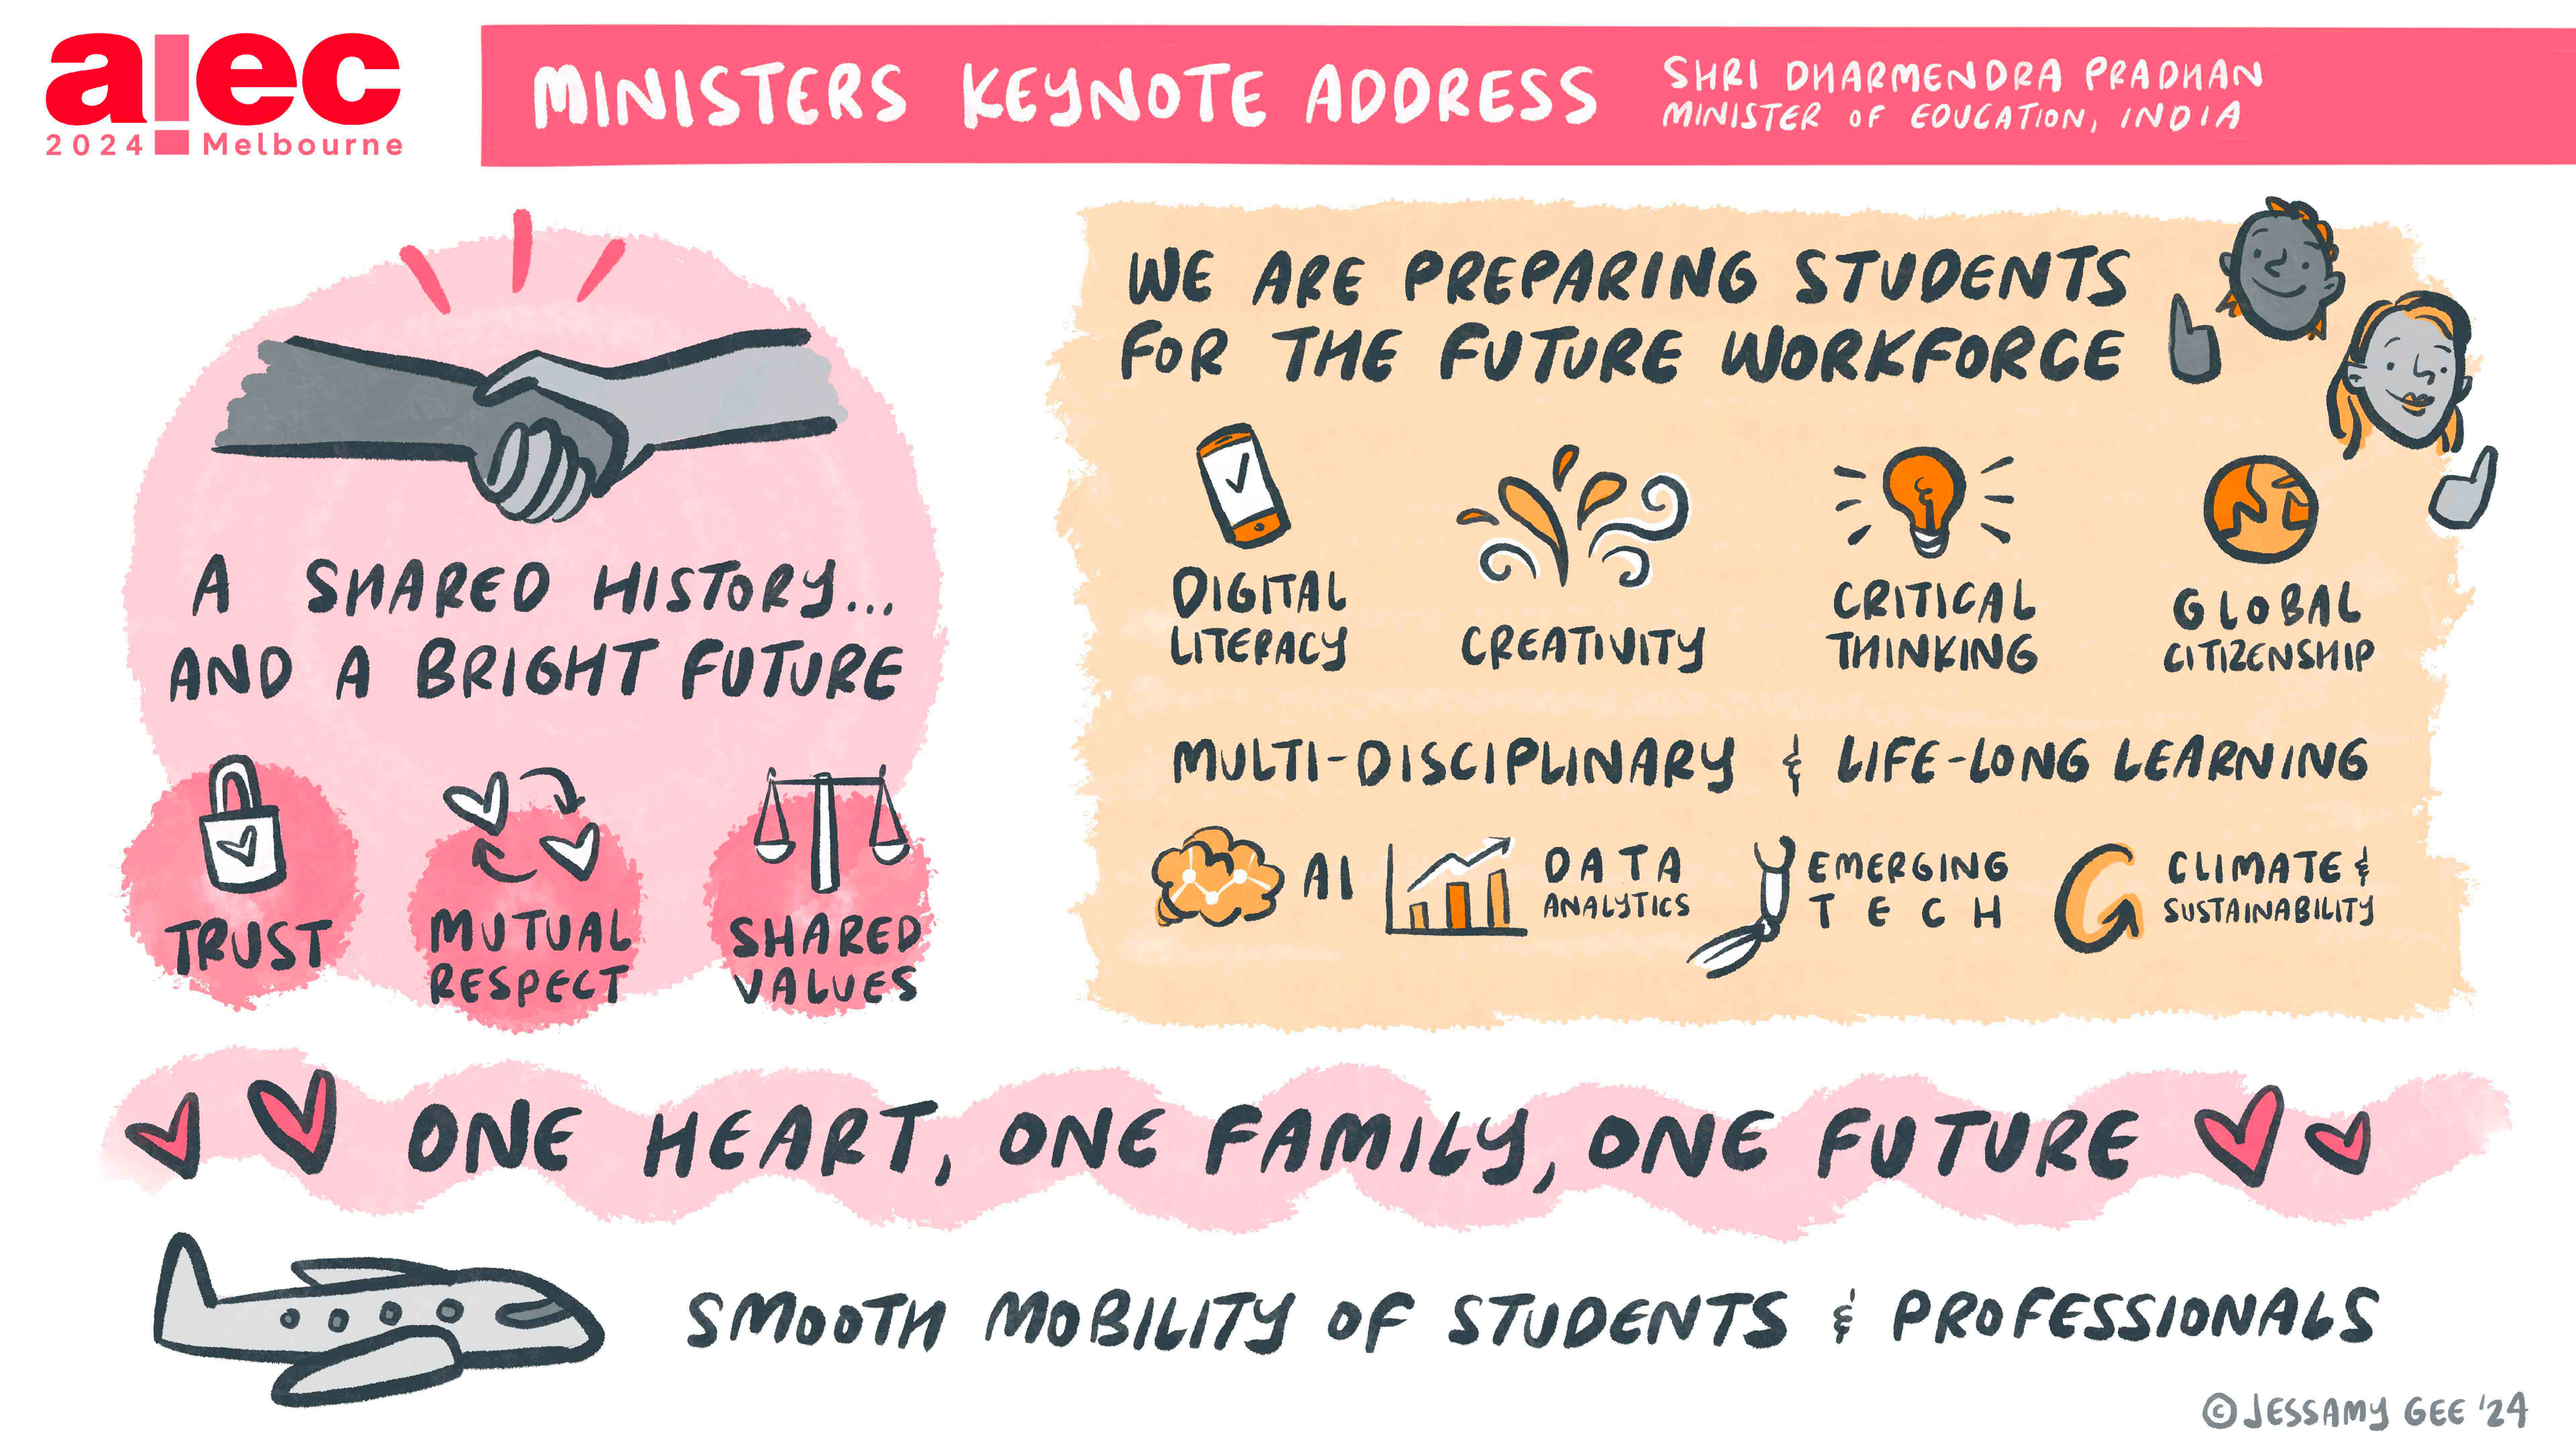 aiec
2024 Melbourne
MINISTERS KEYNOTE ADDRESS
SHRI DHARMENDRA PRADHAN
MINISTER OF EDUCATION, INDIA
A SHARED HISTORY...
AND A BRIGHT FUTURE
TRUST
MUTUAL
RESPECT
SHARED
VALUES
WE ARE PREPARING STUDENTS
FOR THE FUTURE WORKFORCE
DIGITAL
LITERACY
CREATIVITY
CRITICAL
THINKING
GLOBAL
CITIZENSHIP
MULTI-DISCIPLINARY & LIFE-LONG LEARNING
AI
DATA
ANALYTICS
EMERGING
TECH
CLIMATE &
SUSTAINABILITY
ONE HEART, ONE FAMILY, ONE FUTURE
SMOOTH MOBILITY OF STUDENTS & PROFESSIONALS
© JESSAMY GEE '24